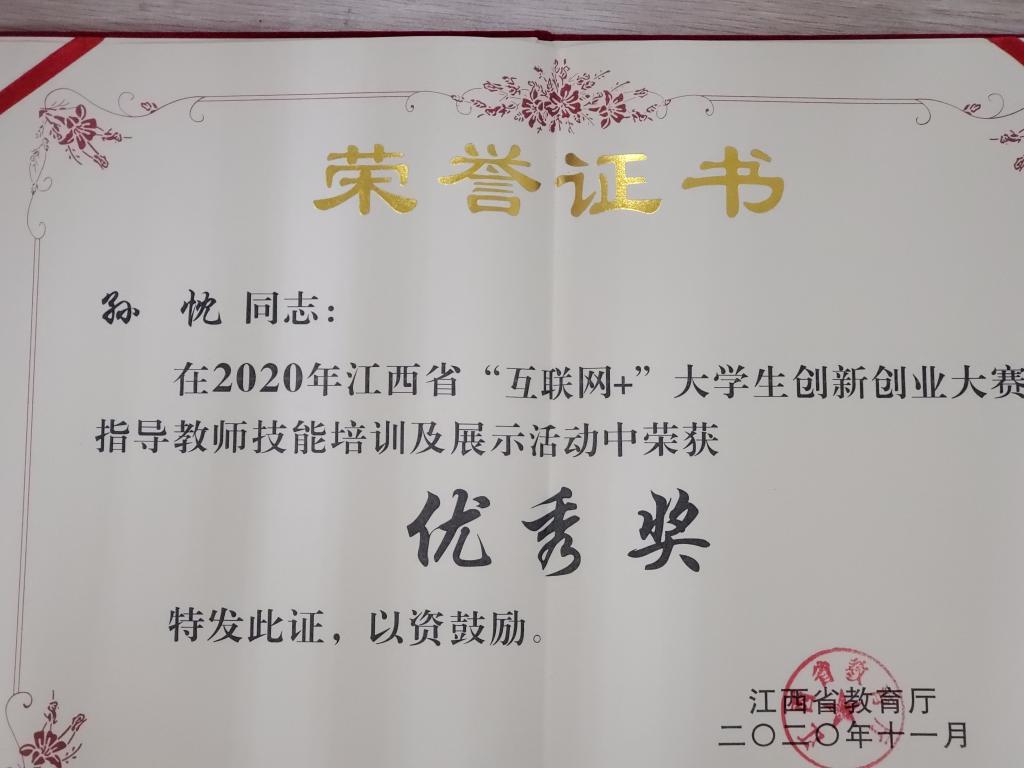 荣誉证书
孙 忱 同志:
在2020年江西省“互联网+”大学生创新创业大赛
指导教师技能培训及展示活动中荣获
优秀奖
特发此证，以资鼓励。
江西省教育厅
二〇二〇年十一月
江西省教育厅